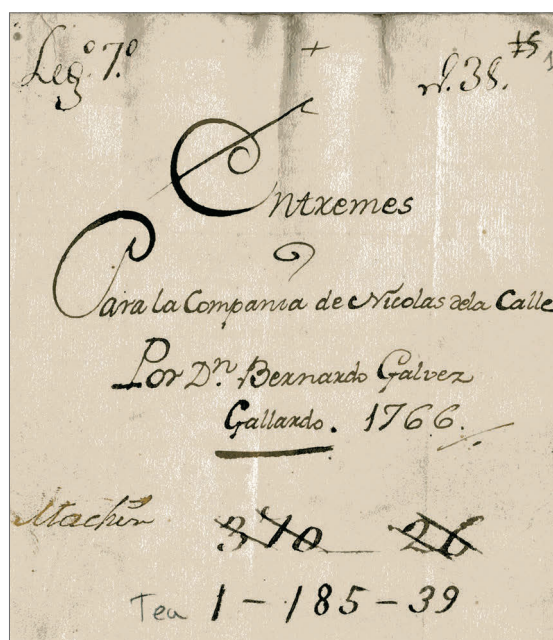 Leg.º 7.º + n. 38.
Entremes
Para la Compania de Nicolas de la Calle
Por Dn. Bernardo Galvez
Gallardo. 1766.
Machin
370 26
Tea 1-185-39